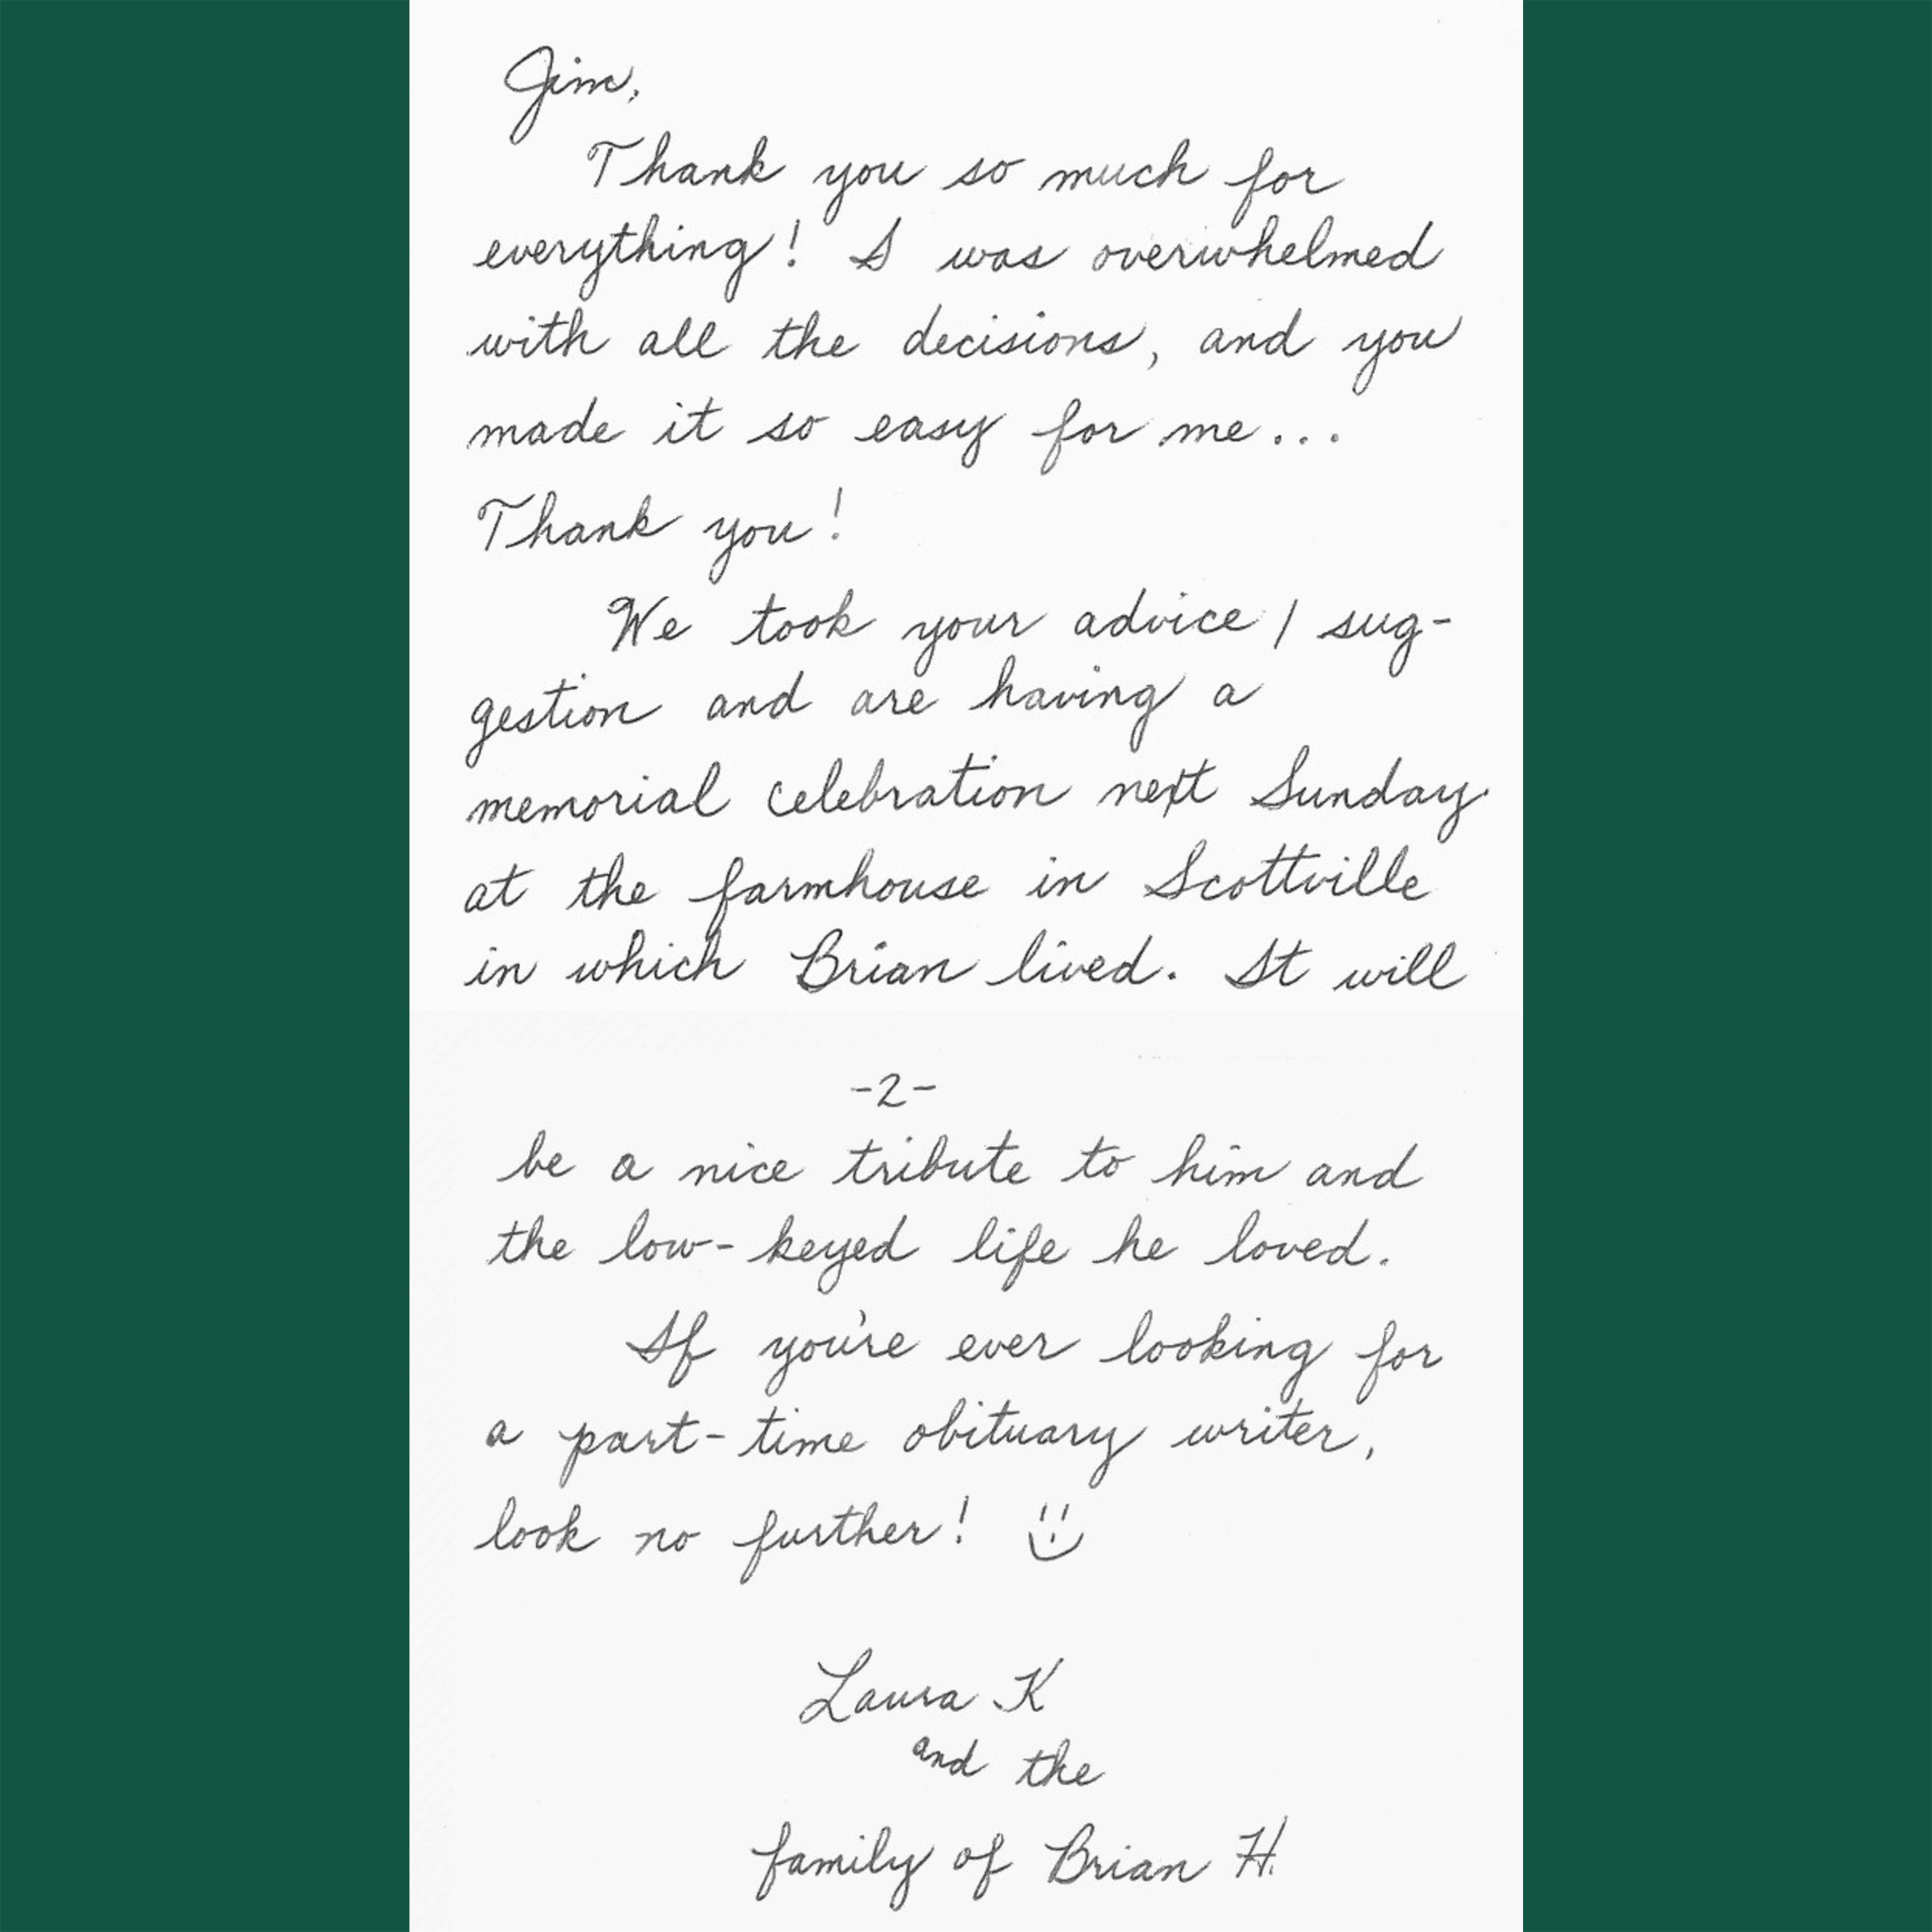 Jim,
Thank you so much for
everything! I was overwhelmed
with all the decisions, and you
made it so easy for me...
Thank you!
We took your advice / sug-
gestion and are having a
memorial celebration next Sunday
at the farmhouse in Scottville
in which Brian lived. It will
-2-
be a nice tribute to him and
the low-keyed life he loved.
If you're ever looking for
a part-time obituary writer,
look no further! :)
Laura K
and the
family of Brian H.